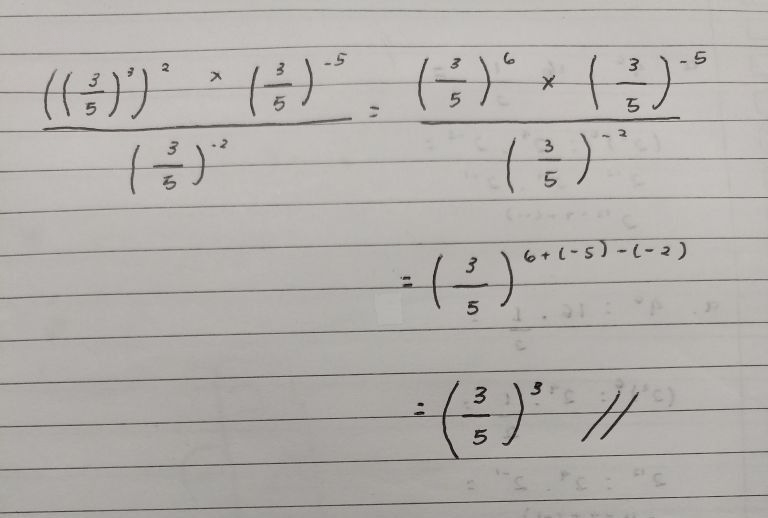 ((3/5)³)² × (3/5)⁻⁵ / (3/5)⁻² = (3/5)⁶ × (3/5)⁻⁵ / (3/5)⁻²
= (3/5)⁶⁺⁽⁻⁵⁾⁻⁽⁻²⁾
= (3/5)³ //